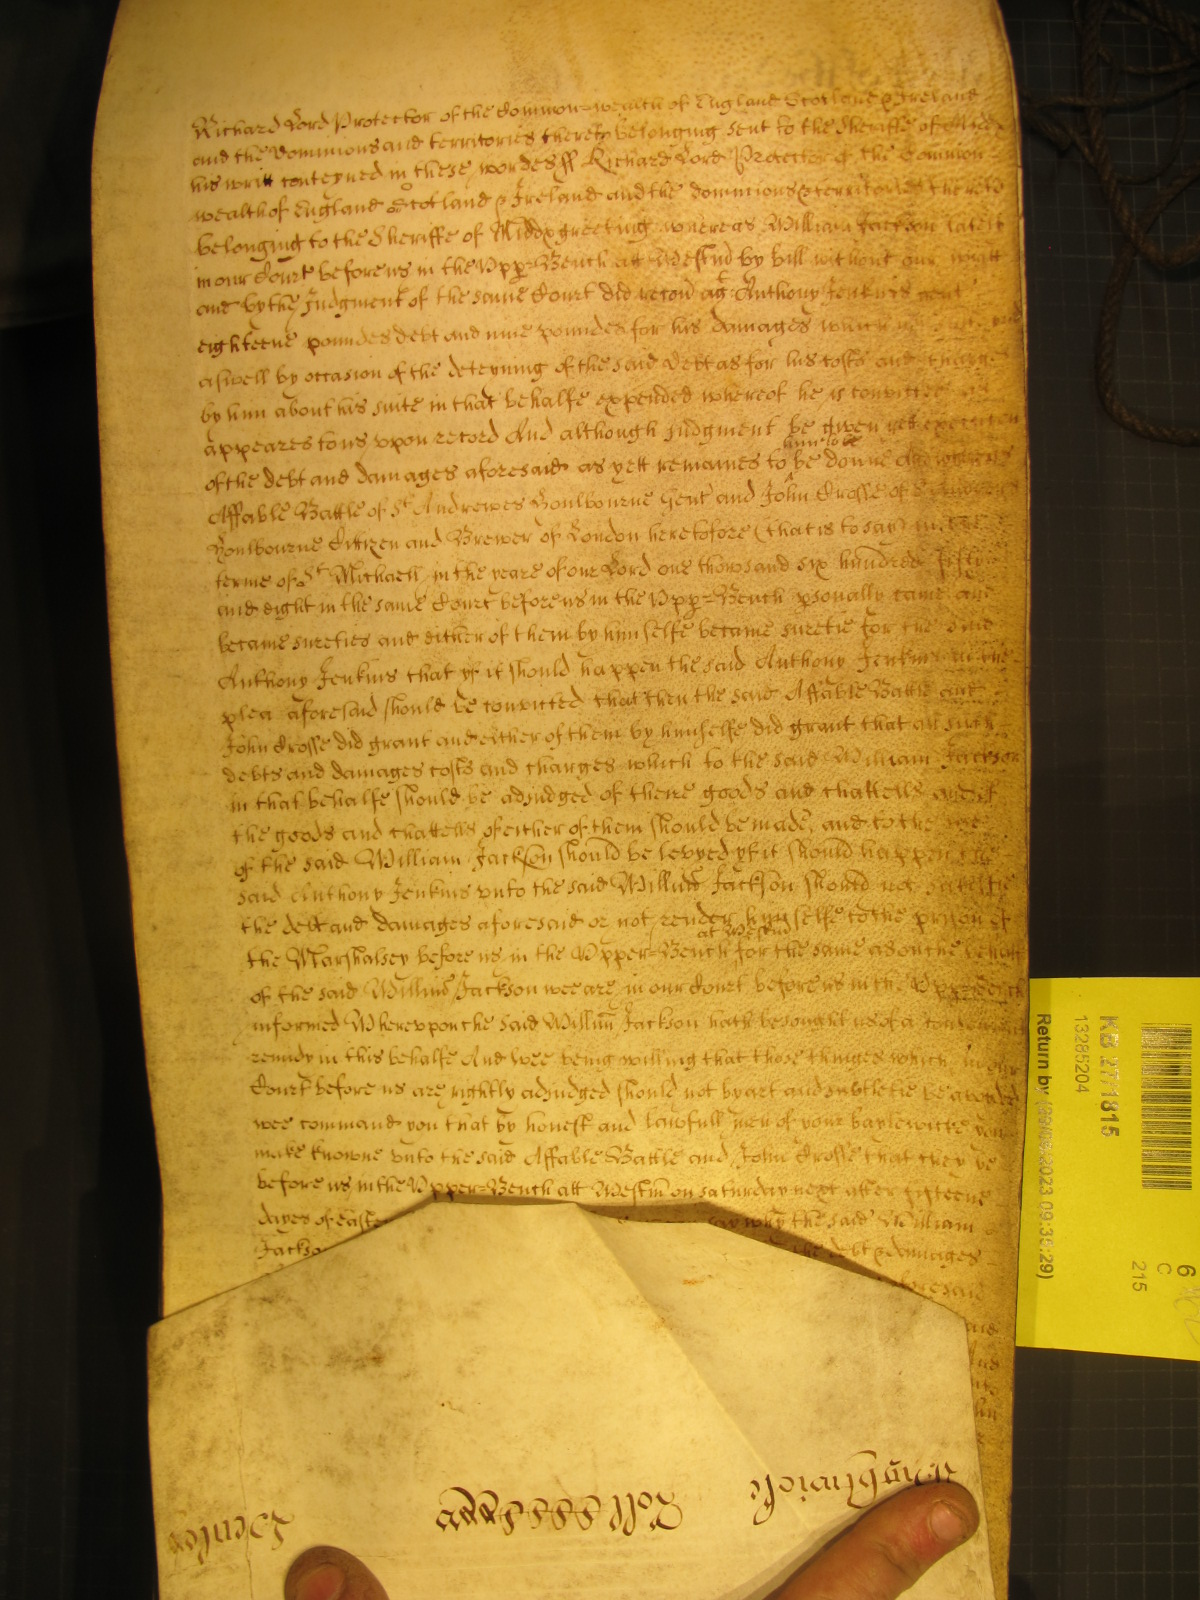 Richard Lord Protector of the Common-wealth of England Scotland & Ireland
and the Dominions and territories thereto belonging sent to the Sheriffe of Midd
his writt conteyned in these wordes ss Richard Lord Protector of the Common
wealth of England Scotland & Ireland and the dominions & territories thereto
belonging to the Sheriffe of Middx greeting whereas William Jackson latele
in our Court before us in the Upp-Bench att Westm by bill without our writt
and by the Judgment of the same Court did recov ag Anthony Jenkins gent
eighteene poundes debt and nine poundes for his damages which
aswell by occasion of the deteyning of the said debt as for his costs and charges
by him about his suite in that behalfe expended whereof he is convicted as
appeares to us upon record And although Judgment be given yet execucon
of the debt and damages aforesaid as yett remaines to him to be be donne And whereas
Affable Battle of St Andrewes Houlbourne gent and John Crosse of St Andrewes
Houlbourne Citizen and Brewer of London heretofore (that is to say) in the
terme of St Michaell in the yeare of our Lord one thowsand six hundred fifty
and eight in the same Court before us in the Upp-Bench psonally came and
became sureties and either of them by himselfe became suretie for the said
Anthony Jenkins that yf it should happen the said Anthony Jenkins in the
plea aforesaid should be convicted that then the said Affable Battle and
John Crosse did grant and either of them by himselfe did grant that all such
debts and damages costs and charges which to the said William Jackson
in that behalfe should be adjudged of there goods and chattells and of
the goods and chattells of either of them should be made, and to the use
of the said William Jackson should be levyed yf it should happen the
said Anthony Jenkins unto the said Willm Jackson should not satisfie
the debt and damages aforesaid or not render himselfe to the prison of
the Marshalsey before us in the Upper-Bench at Westm for the same as on the behalfe
of the said Willm Jackson wee are in our Court before us in the Upp Bench
informed Whereupon the said Willm Jackson hath besought us of a convenient
remidy in this behalfe And wee being willing that those thinges which in our
Court before us are rightly adjudged should not by art and subtletie be avoyded
wee command you that by honest and lawfull men of your baylewicke you
make knowne unto the said Affable Battle and John Crosse that they be
before us in the Upper-Bench att Westm on Saturday next after fifteene
dayes of Easter why the said William
Jackson the debt & damages
aforesaid
Roll
KB 27/1815
13285204
Return by (
2023 09:30:29)
6
C
215